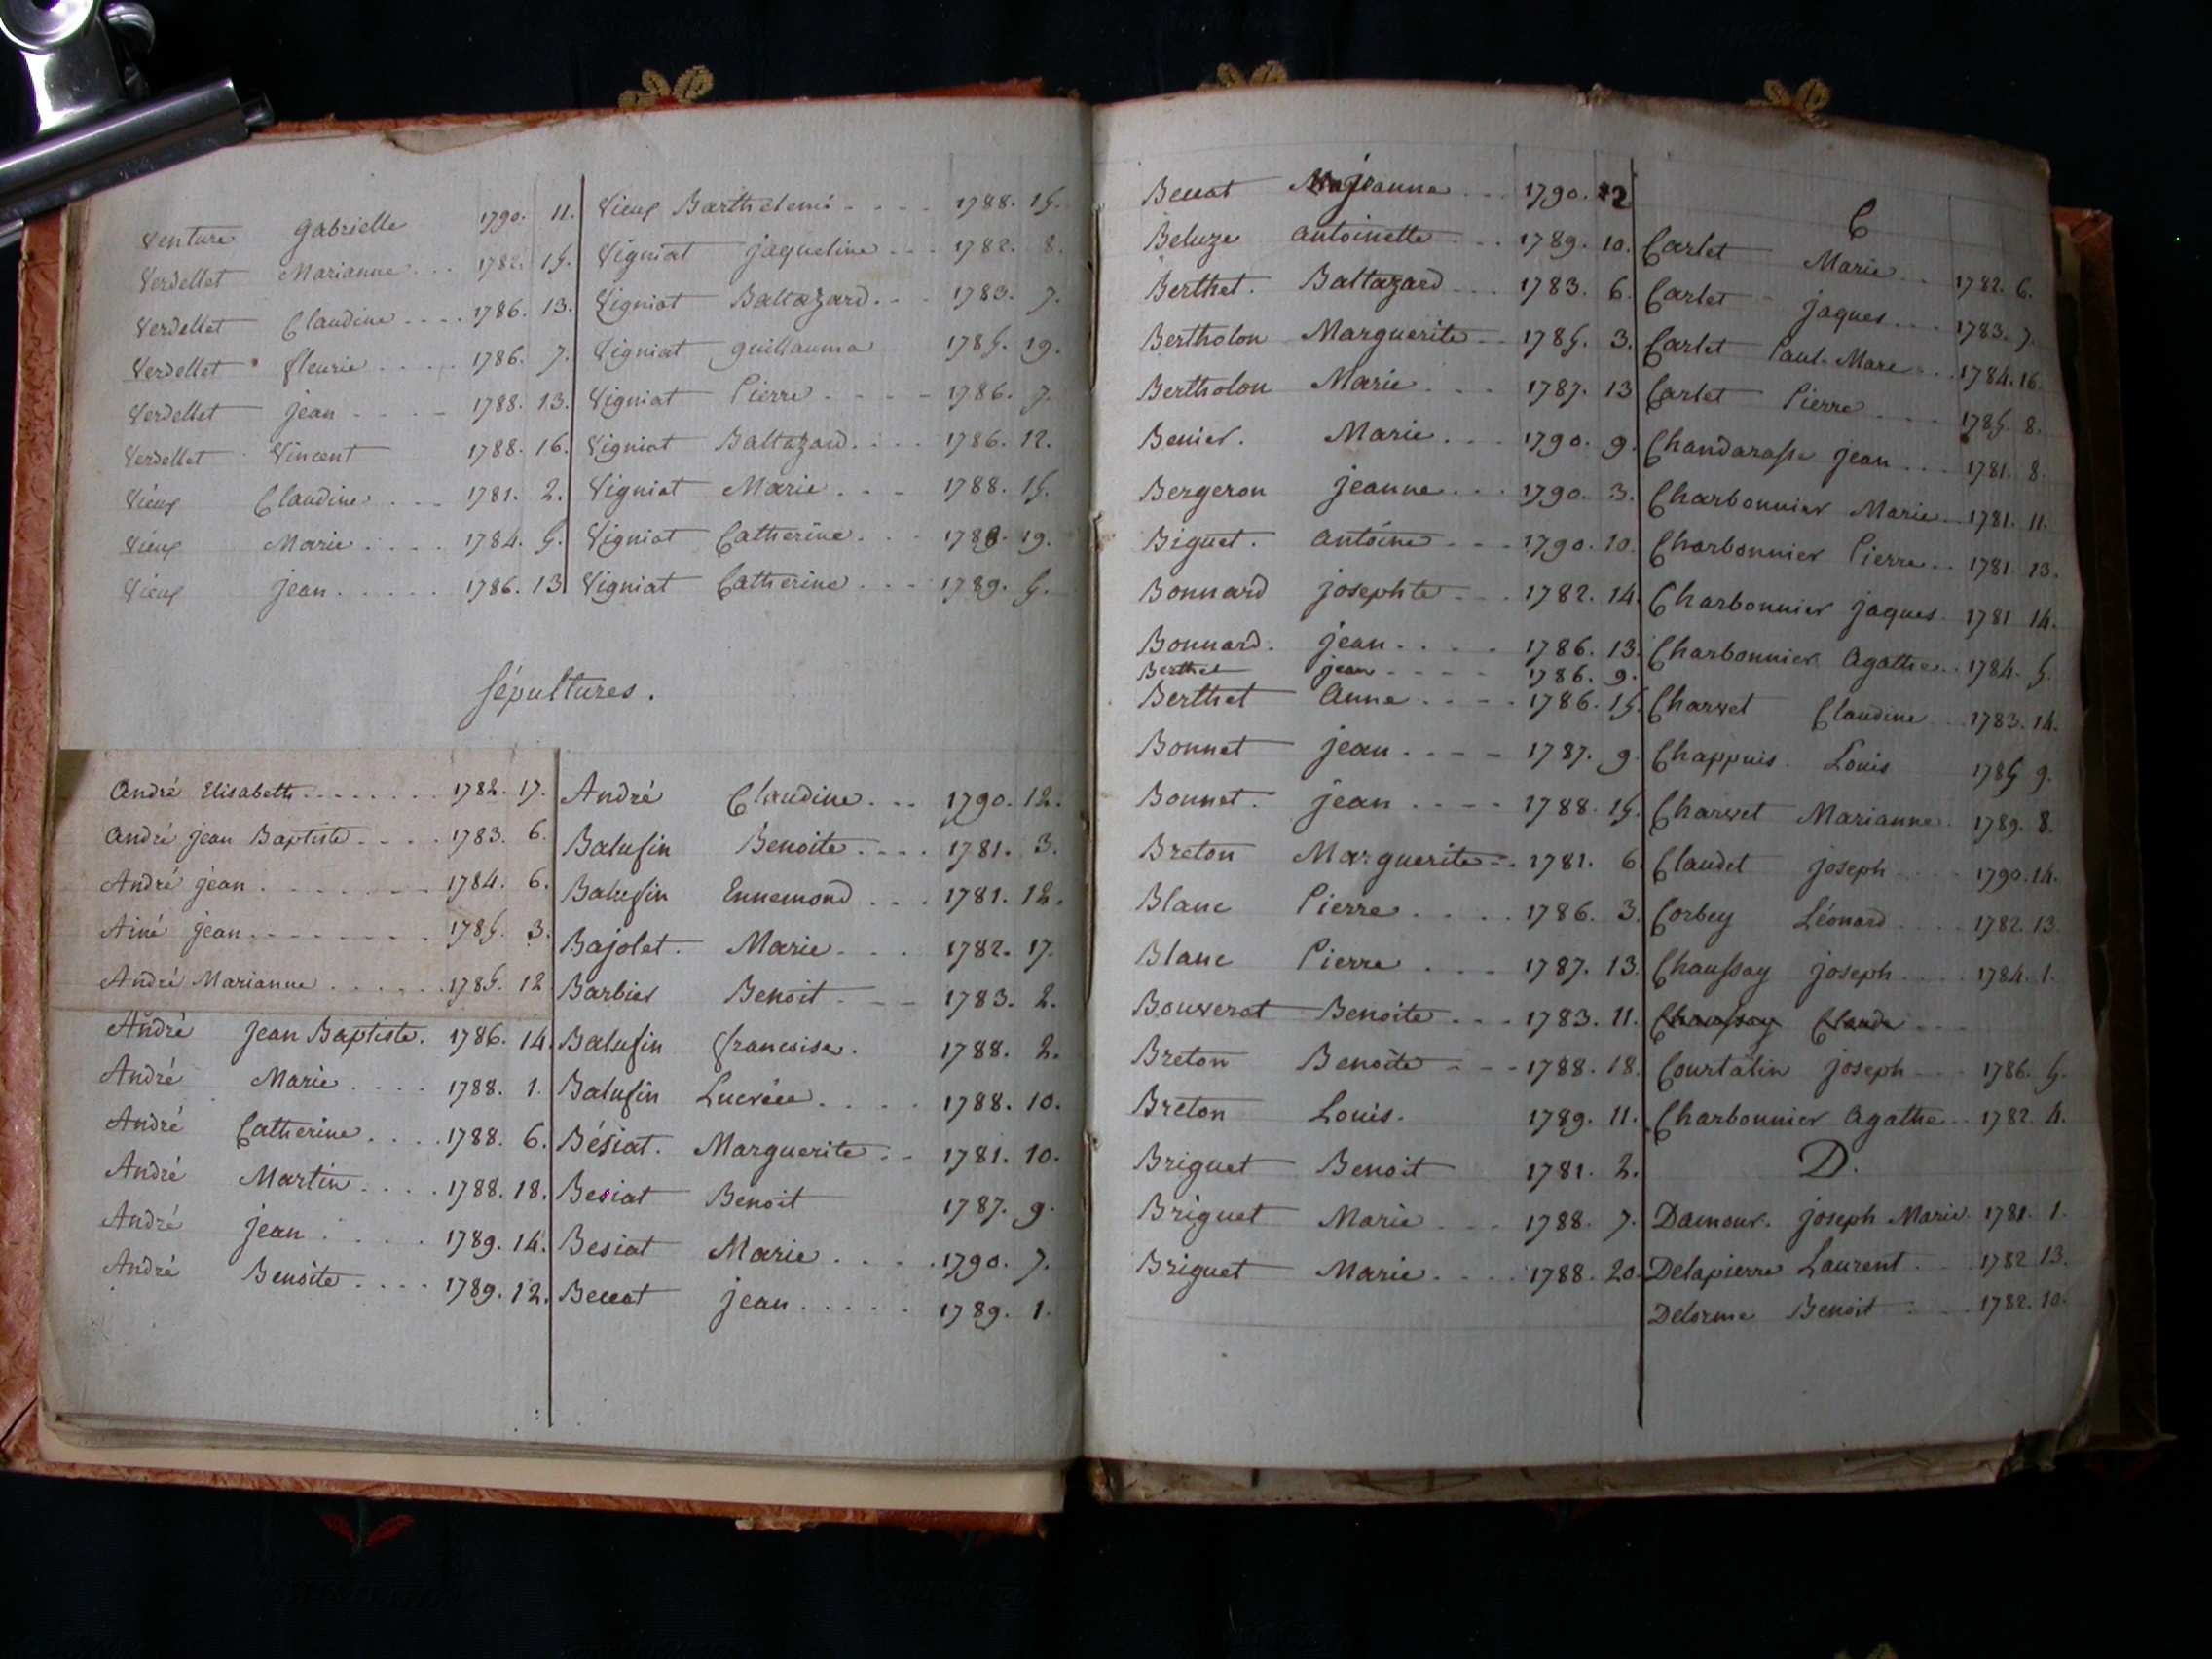 Venture Gabrielle 1790. 11.
Verdellet Marianne... 1782. 15.
Verdellet Claudine.... 1786. 13.
Verdellet fleurie..... 1786. 7.
Verdellet jean.... 1788. 13.
Verdellet Vincent 1788. 16.
Vieux Claudine.... 1781. 2.
Vieux Marie.... 1784. 5.
Vieux jean..... 1786. 13
Vieux Barthelemi.... 1788. 15.
Vigniat jaqueline... 1782. 8.
Vigniat Baltazard... 1783. 7.
Vigniat guillaume 1785. 19.
Vigniat Pierre.... 1786. 7.
Vigniat Baltazard.... 1786. 12.
Vigniat Marie... 1788. 15.
Vigniat Catherine... 1788. 19.
Vigniat Catherine... 1789. 5.
Sépultures.
André Elisabeth........ 1782. 17.
André jean Baptiste.... 1783. 6.
André jean....... 1784. 6.
Ainé jean........ 1785. 3.
André Marianne...... 1785. 12
André jean Baptiste. 1786. 14.
André Marie.... 1788. 1.
André Catherine.... 1788. 6.
André Martin.... 1788. 18.
André jean.... 1789. 14.
André Benoite.... 1789. 12.
André Claudine... 1790. 12.
Balufin Benoite.... 1781. 3.
Balufin Ennemond... 1781. 12.
Bajolet. Marie... 1782. 17.
Barbier Benoit... 1783. 2.
Balufin francoise. 1788. 2.
Balufin Lucrèce.... 1788. 10.
Bésiat. Marguerite.. 1781. 10.
Besiat Benoit 1787. 9.
Besiat Marie.... 1790. 7.
Beccat jean..... 1789. 1.
Beccat jeanne... 1790. 2
Beluze antoinette... 1789. 10.
Berthet. Baltazard... 1783. 6.
Bertholon Marguerite.. 1785. 3.
Bertholon Marie... 1787. 13
Benier. Marie... 1790. 9.
Bergeron jeanne... 1790. 3.
Biguet. antoine... 1790. 10.
Bonnard josephte... 1782. 14.
Bonnard. jean.... 1786. 13.
Berthet jean.... 1786. 9.
Berthet anne.... 1786. 15.
Bonnet jean.... 1787. 9
Bonnet. jean.... 1788. 15.
Breton Marguerite.. 1781. 6.
Blanc Pierre.... 1786. 3.
Blanc Pierre... 1787. 13.
Bouverot Benoite... 1783. 11.
Breton Benoite... 1788. 18.
Breton Louis. 1789. 11.
Briguet Benoit 1781. 2.
Briguet Marie... 1788. 7.
Briguet Marie.... 1788. 20.
C
Carlet Marie... 1782. 6.
Carlet jaques... 1783. 7.
Carlet Paul-Marc... 1784. 16.
Carlet Pierre.... 1785. 8.
Chandarasse jean... 1781. 8.
Charbonnier Marie.. 1781. 11.
Charbonnier Pierre.. 1781. 13.
Charbonnier jaques. 1781 14.
Charbonnier Agathe.. 1784. 5.
Charvet Claudine.. 1783. 14.
Chappuis. Louis 1785 9.
Charvet Marianne. 1789. 8.
Claudet joseph.... 1790. 14.
Corbey Léonard.... 1782. 13.
Chaussay joseph.... 1784. 1.
Chaussay Claude...
Courtalin joseph... 1786. 5.
Charbonnier Agathe.. 1782. 4.
D.
Damour. joseph Marie. 1781. 1.
Delapierre Laurent... 1782 13.
Delorme Benoit.... 1782. 10.